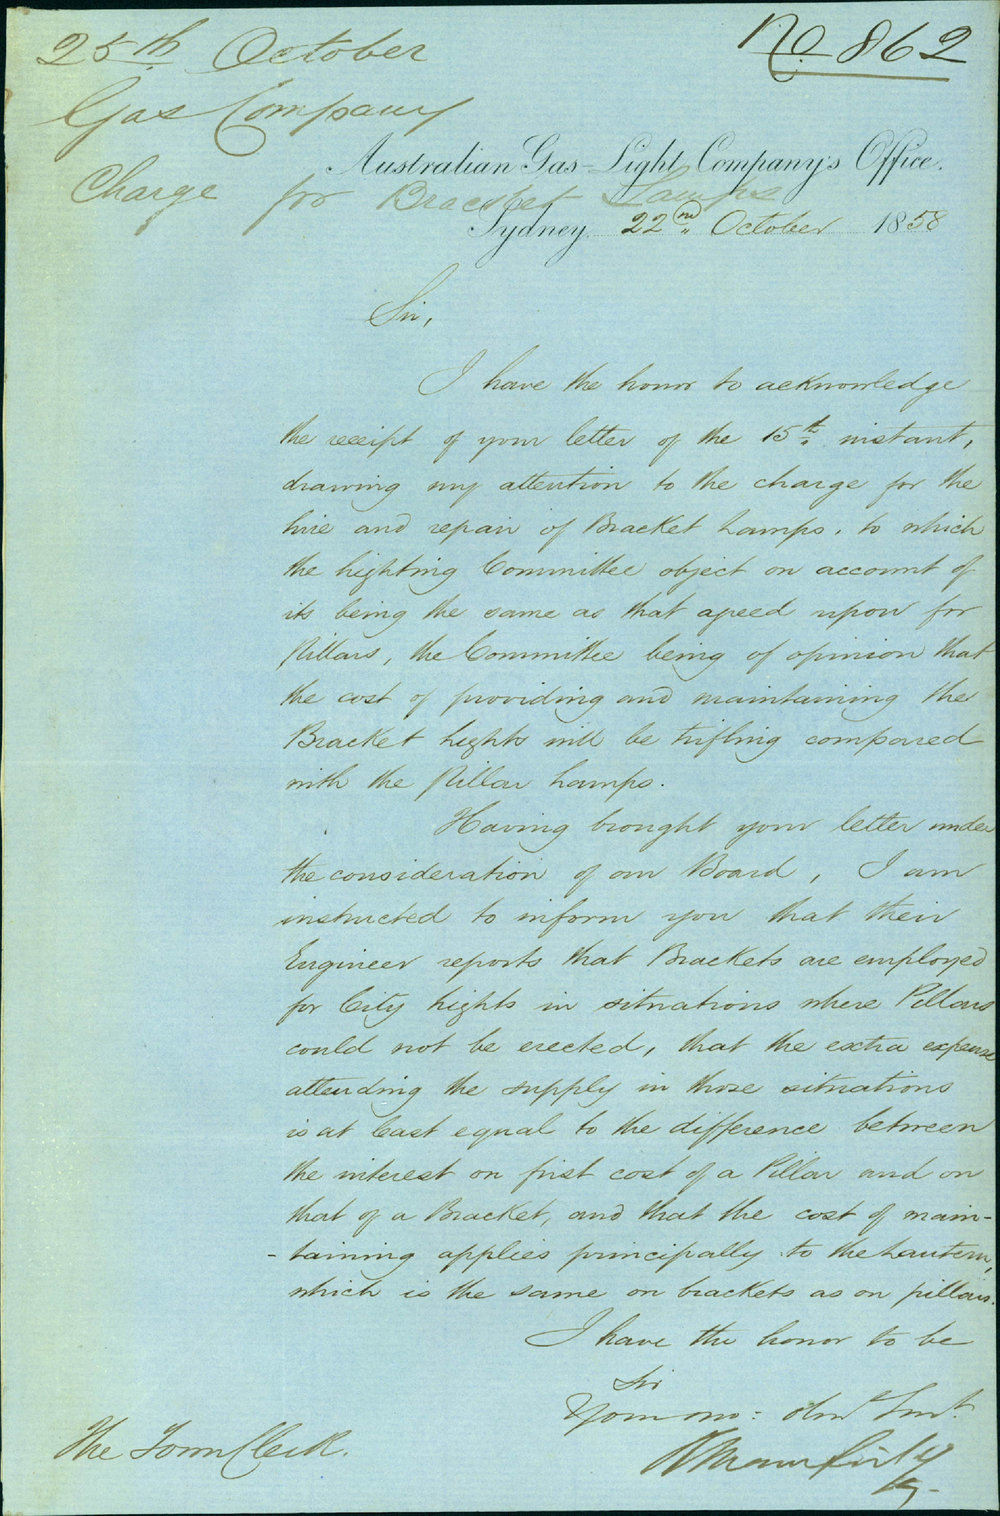 25th October
No 862
Gas Company
Australian Gas-Light Company's Office.
Charge for Bracket Lamps
Sydney, 22nd October 1858
Sir,
I have the honor to acknowledge
the receipt of your letter of the 15th instant,
drawing my attention to the charge for the
hire and repair of Bracket Lamps, to which
the Lighting Committee object on account of
its being the same as that agreed upon for
Pillars, the Committee being of opinion that
the cost of providing and maintaining the
Bracket Lights will be trifling compared
with the Pillar Lamps.
Having brought your letter under
the consideration of our Board, I am
instructed to inform you that their
Engineer reports that Brackets are employed
for City Lights in situations where Pillars
could not be erected, that the extra expense
attending the supply in those situations
is at least equal to the difference between
the interest on first cost of a Pillar and on
that of a Bracket, and that the cost of main-
-taining applies principally to the Lantern,
which is the same on brackets as on pillars.
I have the honor to be
Sir
Your mo: obt Servt.
The Town Clerk.